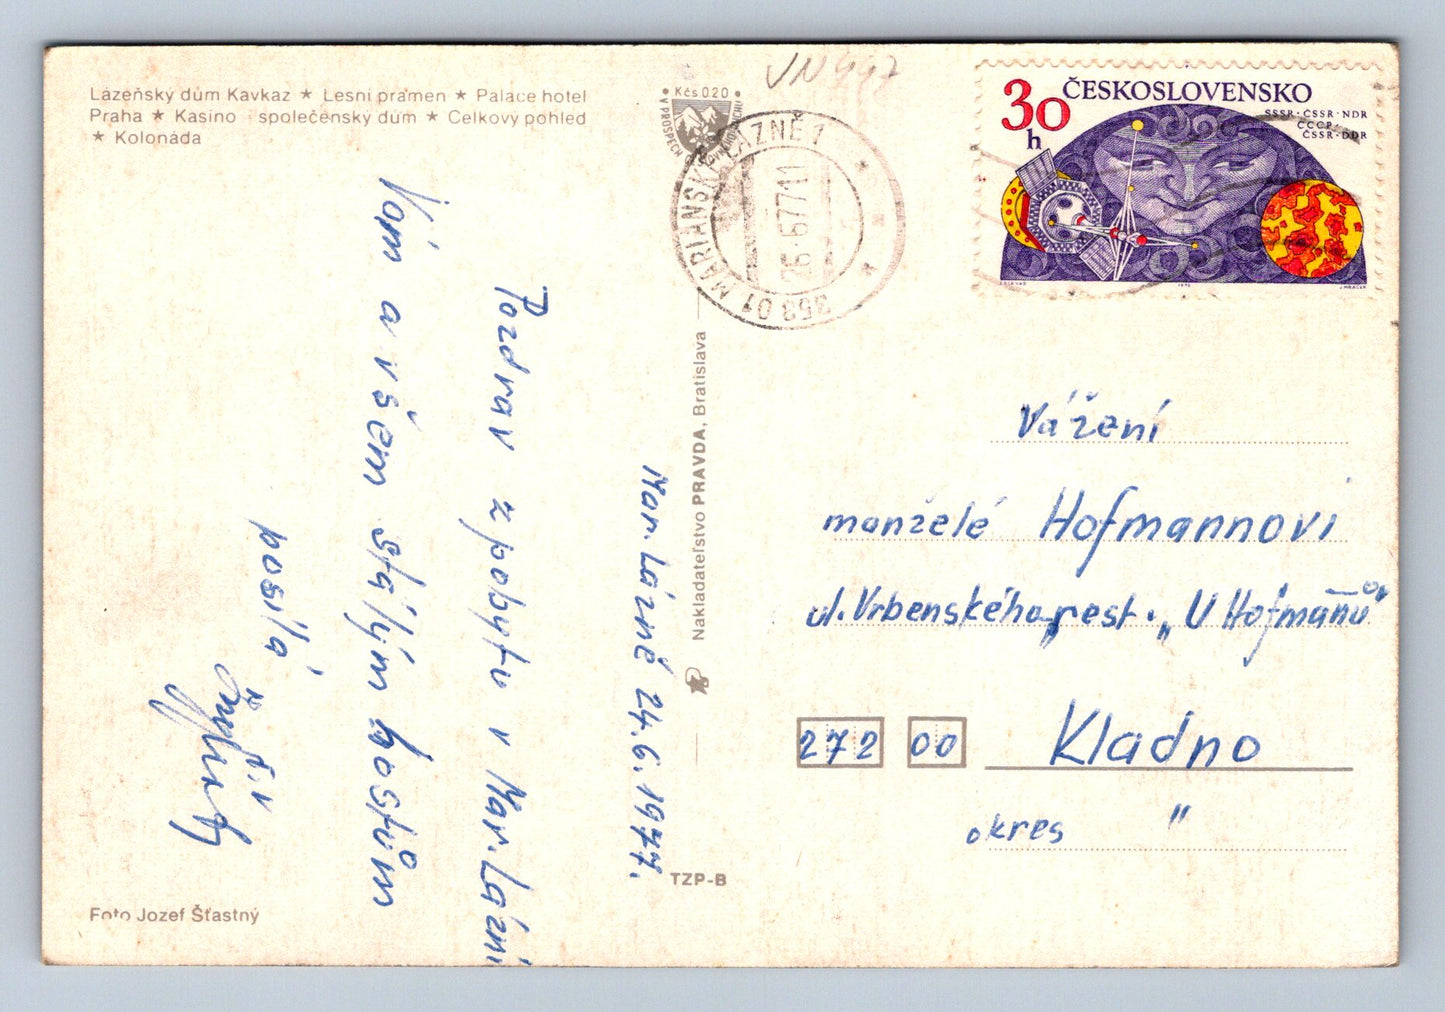 Lázeňský dům Kavkaz ★ Lesní pramen ★ Palace hotel
Praha ★ Kasino společenský dům ★ Celkový pohled
★ Kolonáda
VN 447
Kčs 0.20
V PROSPECH
353 01 MARIÁNSKÉ LÁZNĚ 1
26.-6.77-11
30
h
ČESKOSLOVENSKO
SSSR·ČSSR·NDR
СССР
ČSSR·DDR
1975
J. MRÁČEK
Mar. Lázně 24.6.1977.
Pozdrav z pobytu v Mar. Lázní
Vám a všem stálým hostům
posílá
Vážení
manželé Hofmannovi
ul. Vrbenského, rest. „U Hofmanů"
272 00 Kladno
okres "
Nakladateľstvo PRAVDA, Bratislava
TZP-B
Foto Jozef Šťastný